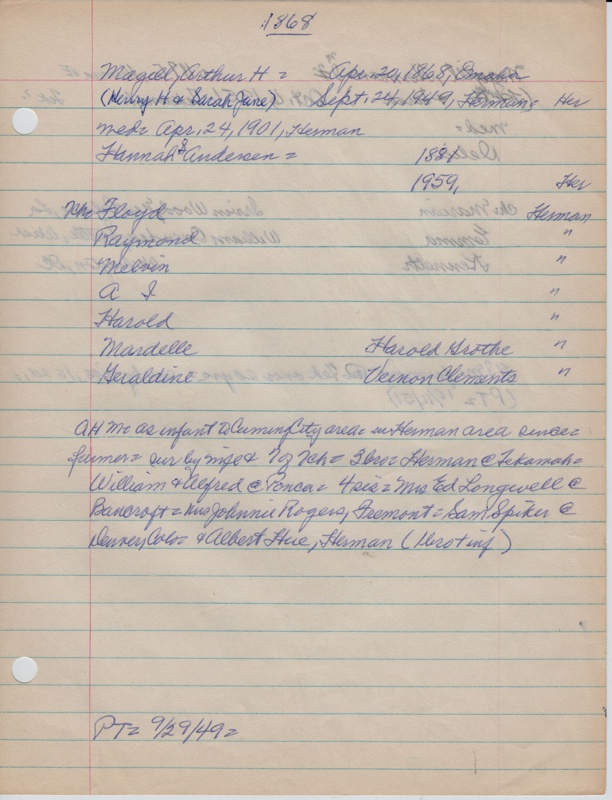 1868
Magill, Arthur H = Apr. 20, 1868, Omaha
(Henry H & Sarah Jane) Sept. 24, 1949, Herman = Her
med = Apr. 24, 1901, Herman
Hannah J Andersen = 1881
1959, Her
Floyd Herman
Raymond "
Melvin "
A I "
Harold "
Mardelle Harold Grothe "
Geraldine Vernon Clements "
AHM = as infant to Cuming City area = in Herman area since =
farmer = sur by wife & 7 of ch = 3 bro = Herman @ Tekamah =
William & Alfred @ Ponca = 4 sis = Mrs Ed Longwell @
Bancroft = Mrs Johnnie Rogers, Fremont = Sam Spiker @
Denver, Colo = & Albert Hue, Herman (1 bro + inf)
PT = 9/29/49 =